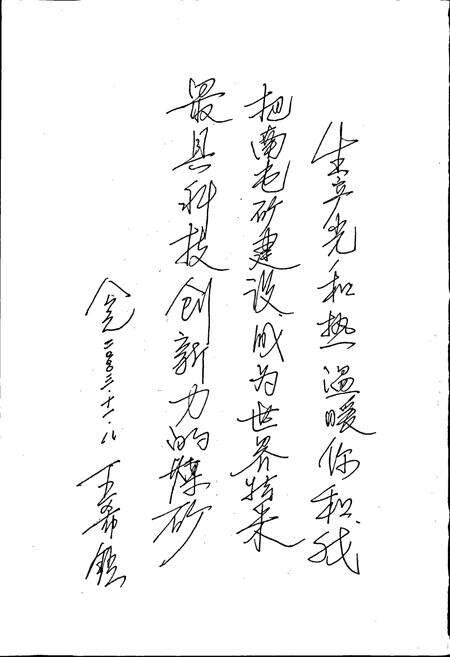 生产光和热温暖你和我
把南屯矿建设成为世界来
最具科技创新力的煤矿
二〇〇三·十一·八 王希